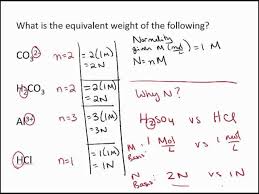 What is the equivalent weight of the following?
CO3 2- n=2 = 2(1M) = 2N
H2CO3 n=2 = 2(1M) = 2N
Al 3+ n=3 = 3(1M) = 3N
HCl n=1 = 1(1M) = 1N
Normality
given M (mol/L) = 1 M
N = nM
Why N?
H2SO4 vs HCl
M: 1 mol/L vs 1 mol/L
Basis
N Basis: 2N vs 1N